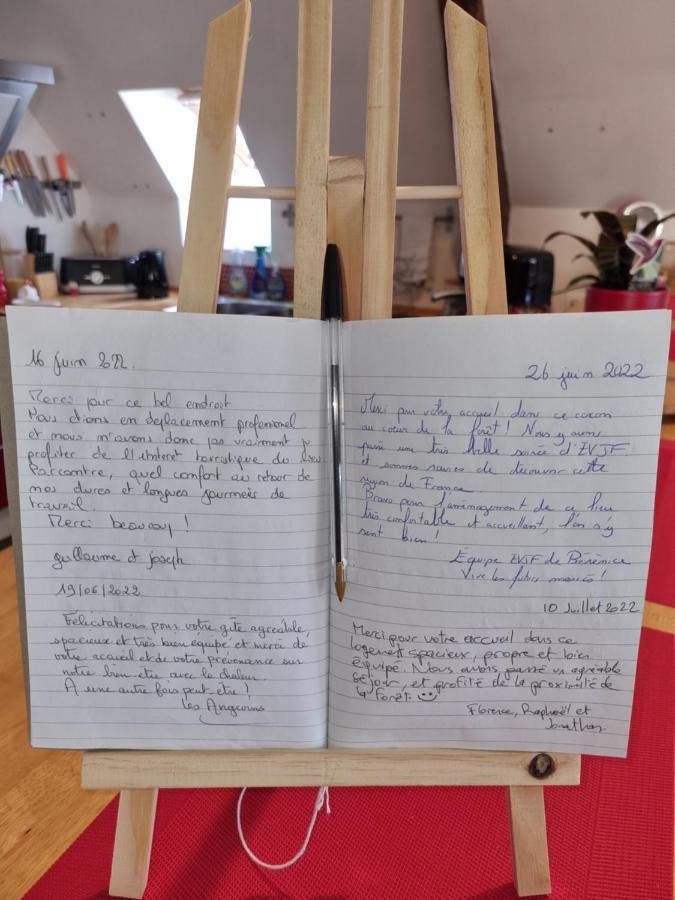 16 juin 2022.
Merci pour ce bel endroit
Nous étions en déplacement professionnel
et nous n'avons donc pas vraiment pu
profiter de l'intéret touristique du lieu
Par contre, quel confort au retour de
nos dures et longues journées de
travail.
Merci beaucoup !
guillaume et joseph
19/06/2022
Félicitations pour votre gîte agréable,
spacieux et très bien équipé et merci de
votre accueil et de votre prévenance sur
notre bien être avec la chaleur.
A une autre fois peut-être !
Les Angevins
26 juin 2022
Merci pour votre accueil dans ce cocon
au coeur de la forêt ! Nous y avons
passé une très belle soirée d'EVJF
et sommes ravies de découvrir cette
région de France.
Bravo pour l'aménagement de ce lieu
très confortable et accueillant, l'on s'y
sent bien !
Équipe EVJF de Bérénice
Vive les futurs mariés !
10 Juillet 2022
Merci pour votre accueil dans ce
logement spacieux, propre et bien
équipé. Nous avons passé un agréable
séjour, et profité de la proximité de
la forêt. 🙂
Florence, Raphaël et
Jonathan.